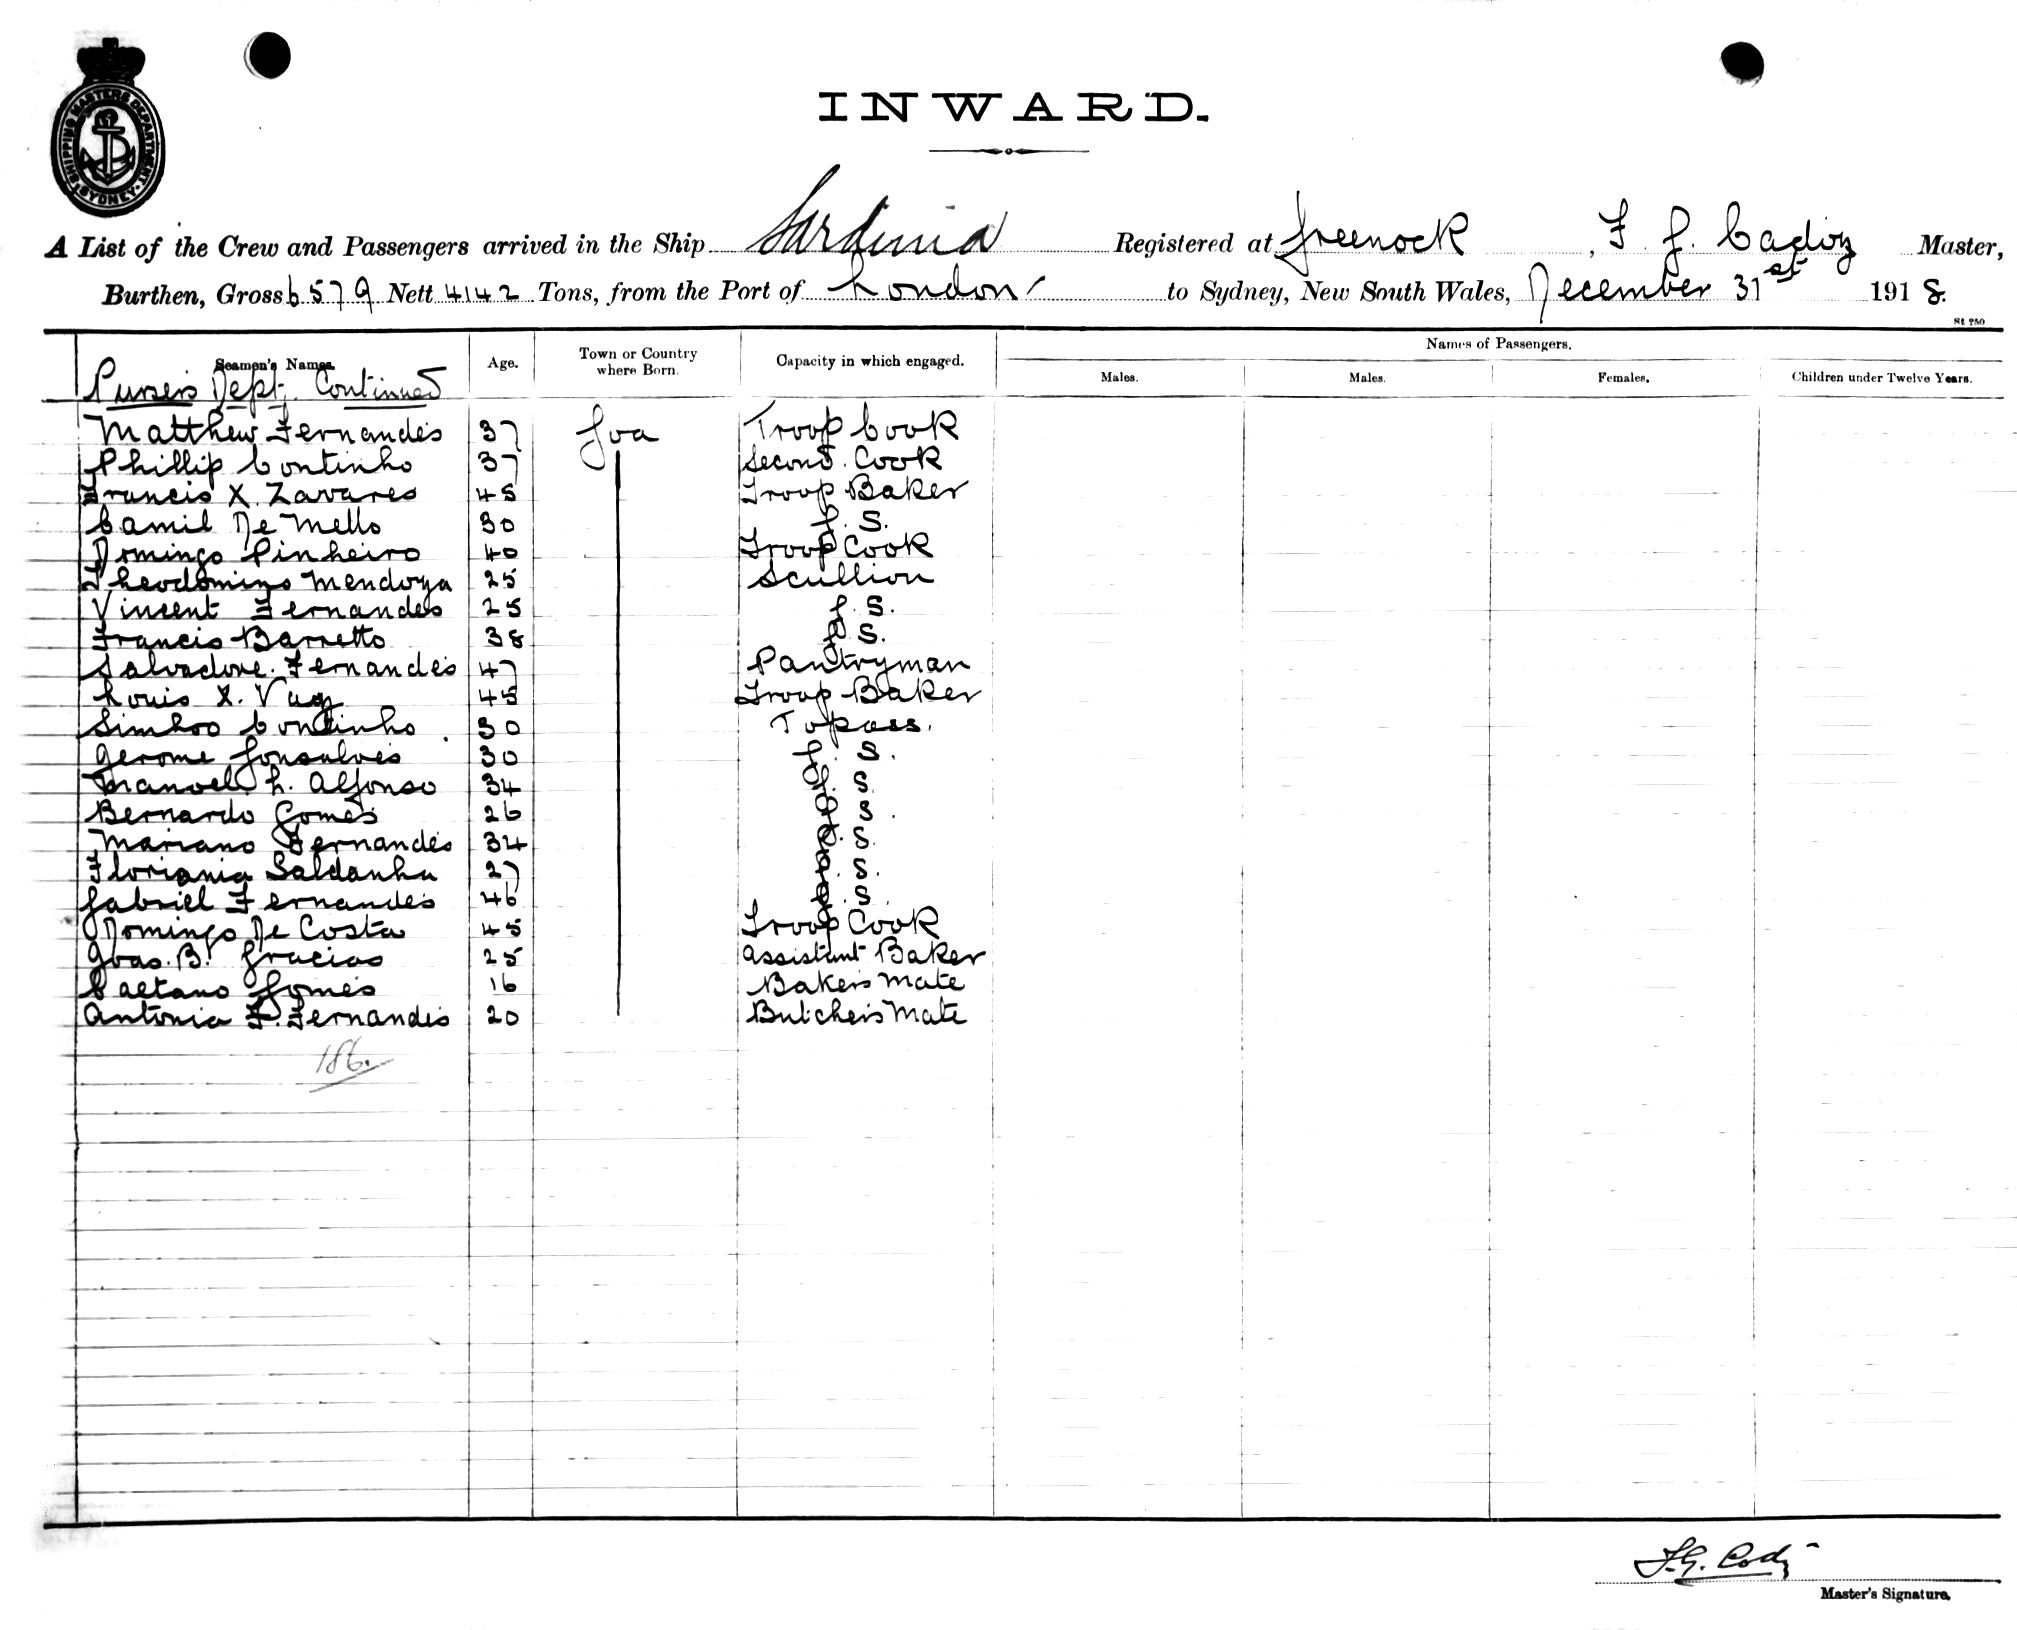 SHIPPING MASTERS DEPARTMENT SYDNEY
INWARD.
A List of the Crew and Passengers arrived in the Ship Sardinia Registered at Greenock, F. G. Cadiz Master,
Burthen, Gross 6579 Nett 4142 Tons, from the Port of London to Sydney, New South Wales, December 31st 1918.
St 250
Seamen's Names. Age. Town or Country where Born. Capacity in which engaged. Names of Passengers.
Males. Males. Females. Children under Twelve Years.
Pursers Dept. Continued
Matthew Fernandes 37 Goa Troop Cook
Phillip Continho 37 Second Cook
Francis X. Zavares 45 Troop Baker
Camil De Mello 30 G. S.
Domingo Pinheiro 40 Troop Cook
Theodomino Mendoza 25 Scullion
Vincent Fernandes 25 G. S.
Francis Barretto 38 G. S.
Salvadore Fernandes 47 Pantryman
Louis X. Vaz 45 Troop Baker
Simhoo Continho 30 Topass.
Gerome Gonsalves 30 G. S.
Manoel L. Alfonso 34 G. S.
Bernardo Gomes 26 G S.
Mariano Fernandes 34 G. S.
Floriania Saldanha 27 G. S.
Gabriel Fernandes 46 G. S.
Domingo De Costa 45 Troop Cook
Joao B. Gracias 25 Assistant Baker
Caetano Gomes 16 Bakers Mate
Antonia F. Fernandes 20 Butchers Mate
186.
F. G. Cadiz
Master's Signature.